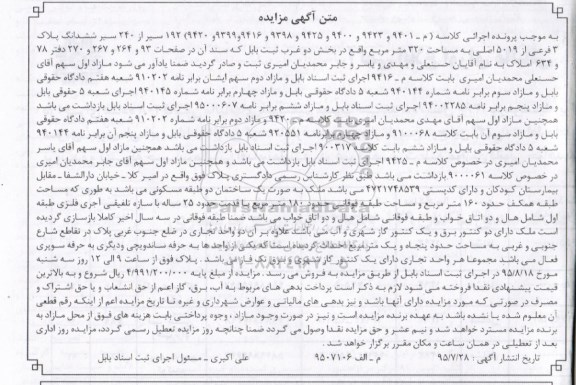 متن آگهی مزایده
به موجب پرونده اجرائی کلاسه ( م ـ ۹۴۰۱ و ۹۴۲۳ و ۹۴۰۰ و ۹۴۲۵ و ۹۳۹۸ و ۹۴۱۶و۹۳۹۹و ۹۴۲۰) ۱۹۲ سیر از ۲۴۰ سیر ششدانگ پلاک
۳ فرعی از ۵۰۱۹ اصلی به مساحت ۳۲۰ متر مربع واقع در بخش دو غرب ثبت بابل که سند آن در صفحات ۹۳ و ۲۶۴ و ۲۶۷ و ۲۷۰ دفتر ۷۸
و ۶۳۴ املاک به نام آقایان حسنعلی و مهدی و یاسر و جابر محمدیان امیری ثبت و صادر گردید ضمنا یادآور می شود مازاد اول سهم آقای
حسنعلی محمدیان امیری بابت کلاسه م ـ ۹۴۱۶ اجرای ثبت اسناد بابل و مازاد دوم سهم ایشان برابر نامه ۹۱۰۲۰۲ شعبه هفتم دادگاه حقوقی
بابل و مازاد سوم برابر نامه شماره ۹۴۰۱۴۴ شعبه ۵ دادگاه حقوقی بابل و مازاد چهارم برابر نامه شماره ۹۴۰۱۴۵ اجرای شعبه ۵ حقوقی بابل
و مازاد پنجم برابر نامه ۹۴۰۰۲۲۸۵ اجرای ثبت اسناد بابل و مازاد ششم برابر نامه ۹۵۰۰۰۶۰۷ اجرای ثبت اسناد بابل بازداشت می باشد
همچنین مازاد اول سهم آقای مهدی محمدیان امیری بابت کلاسه م ـ ۹۴۲۰ و مازاد دوم برابر نامه شماره ۹۱۰۲۰۲ شعبه هفتم دادگاه حقوقی
بابل و مازاد سوم آن بابت کلاسه ۹۱۰۰۰۶۸ و مازاد چهارم نامه ۹۲۰۵۵۱ شعبه ۵ دادگاه حقوقی بابل و مازاد پنجم آن برابر نامه ۹۴۰۱۴۴
شعبه ۵ دادگاه حقوقی بابل و مازاد ششم بابت کلاسه ۹۰۰۳۱۷ اجرای ثبت اسناد بابل بازداشت می باشد همچنین مازاد اول سهم آقای یاسر
محمدیان امیری در خصوص کلاسه م ـ ۹۴۲۵ اجرای ثبت اسناد بابل بازداشت می باشد و همچنین مازاد اول سهم آقای جابر محمدیان امیری
در خصوص کلاسه ۹۰۰۰۰۶۱ بازداشت می باشد طبق نظر کارشناس رسمی دادگستری پلاک فوق واقع در امیر کلا ـ خیابان دارالشفا ـ مقابل
بیمارستان کودکان و دارای کدپستی ۴۷۳۱۷۴۸۵۳۹ می باشد ملک به صورت یک ساختمان دو طبقه مسکونی می باشد به طوری که مساحت
طبقه همکف حدود ۱۶۰ متر مربع و مساحت طبقه فوقانی حدود ۱۸۰ متر مربع با قدمت حدود ۲۵ ساله با سازه تلفیقی آجری فلزی طبقه
اول شامل هال و دو اتاق خواب و طبقه فوقانی شامل هال و دو اتاق خواب می باشد ضمنا طبقه فوقانی در سه سال اخیر کاملا بازسازی گردیده
است ملک دارای دو کنتور برق و یک کنتور گاز شهری و آب می باشد علاوه بر آن دو واحد تجاری در ضلع جنوب غربی پلاک در تقاطع شارع
جنوبی و غربی به مساحت حدود پنجاه و یک متر مربع احداث گردیده است که یکی از واحد ها به حرفه ساندویچی ودیگری به حرفه سوپری
فعال می باشد مجموعا هر واحد تجاری دارای یک کنتور گاز شهری و برق تک فاز می باشد . پلاک فوق از ساعت ۹ الی ۱۲ روز سه شنبه
مورخ ۹۵/۸/۱۸ در اجرای ثبت اسناد بابل از طریق مزایده به فروش می رسد . مزایده از مبلغ پایه ۴/۹۹۱/۲۰۰/۰۰۰ ریال شروع و به بالاترین
قیمت پیشنهادی نقدا فروخته می شود لازم به ذکر است پرداخت بدهی های مربوط به آب، برق، گاز اعم از حق انشعاب و یا حق اشتراک و
مصرف در صورتی که مورد مزایده دارای آنها باشد و نیز بدهی های مالیاتی و عوارض شهرداری و غیره تا تاریخ مزایده اعم از اینکه رقم قطعی
آن معلوم شده یا نشده باشد به عهده برنده مزایده است و نیز در صورت وجود مازاد ، وجوه پرداختی بابت هزینه های فوق از محل مازاد به
برنده مزایده مسترد خواهد شد و نیم عشر و حق مزایده نقدا وصول می گردد ضمنا چنانچه روز مزایده تعطیل رسمی گردد، مزایده روز اداری
بعد از تعطیلی در همان ساعت و مکان مقرر برگزار خواهد شد .
تاریخ انتشار آگهی : ۹۵/۷/۲۸ م ـ الف ۹۵۰۷۱۰۶ علی اکبری ـ مسئول اجرای ثبت اسناد بابل